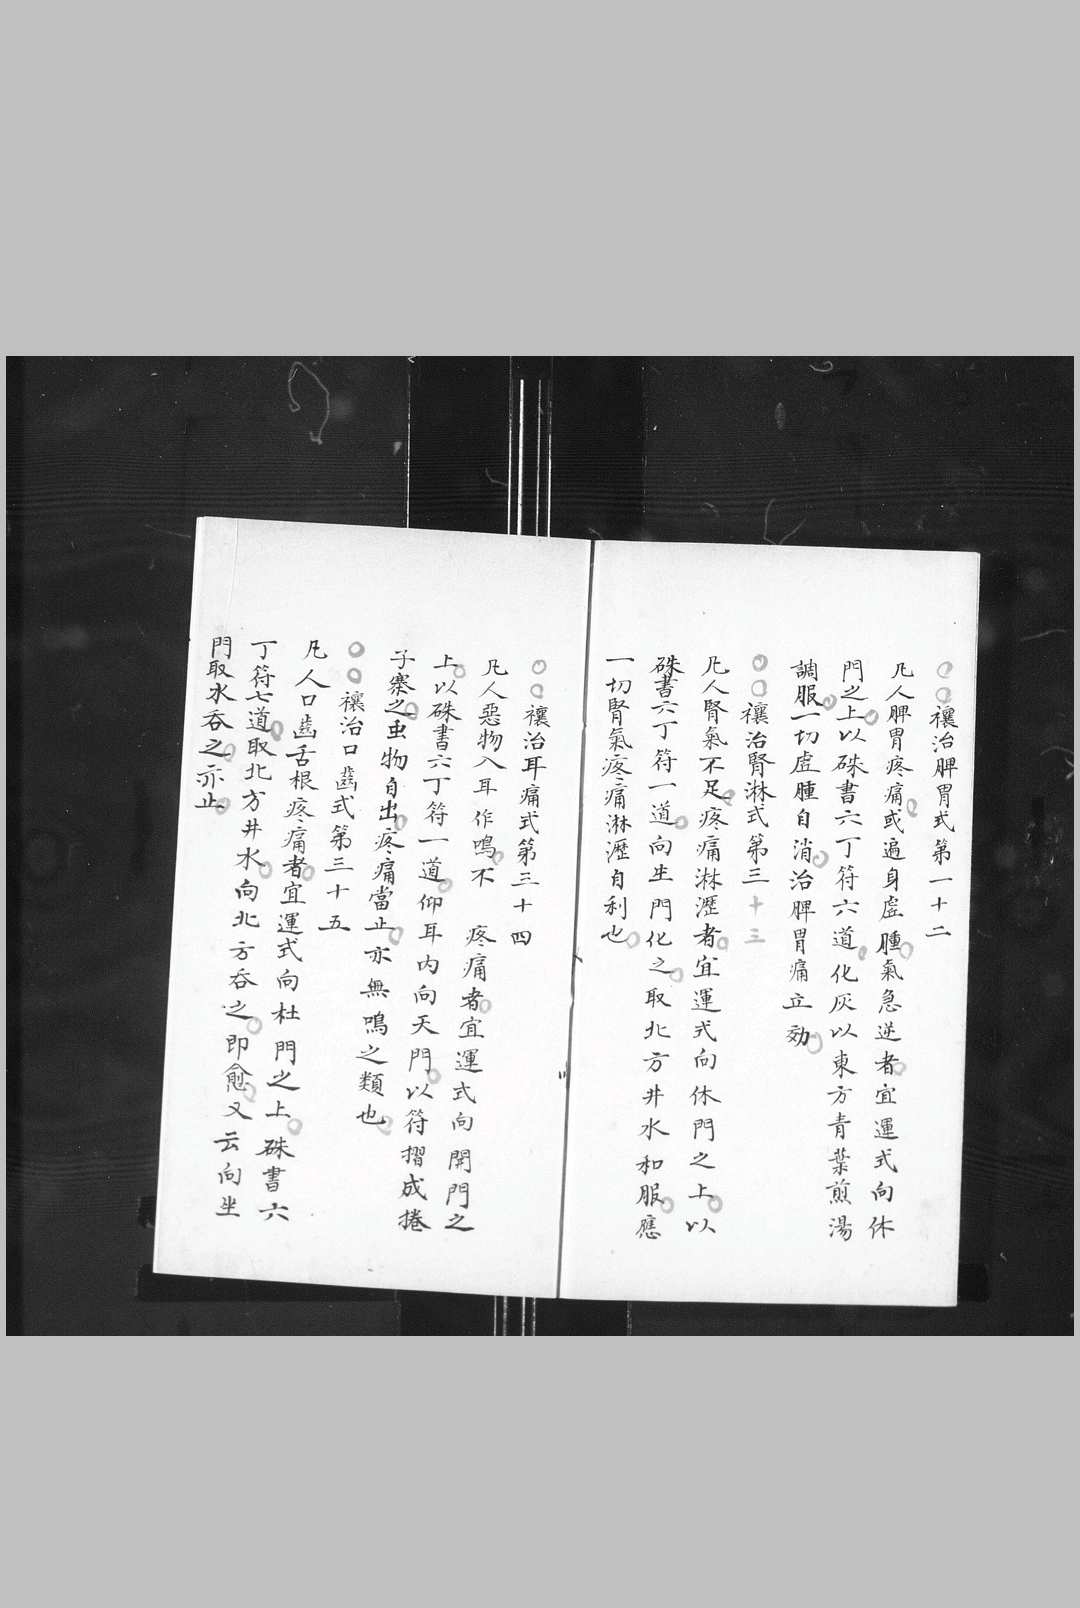 ○○禳治脾胃式第一十二
凡人脾胃疼痛或遍身虛腫氣急逆者宜運式向休
門之上以硃書六丁符六道化灰以東方青葉煎湯
調服一切虛腫自消治脾胃痛立効
○○禳治腎淋式第三十三
凡人腎氣不足疼痛淋瀝者宜運式向休門之上以
硃書六丁符一道向生門化之取北方井水和服應
一切腎氣疼痛淋瀝自利也
○○禳治耳痛式第三十四
凡人惡物入耳作鳴不 疼痛者宜運式向開門之
上以硃書六丁符一道仰耳內向天門以符摺成捲
子寨之虫物自出疼痛當止亦無鳴之類也
○○禳治口齒式第三十五
凡人口齒舌根疼痛者宜運式向杜門之上硃書六
丁符七道取北方井水向北方吞之即愈又云向坐
門取水吞之亦止